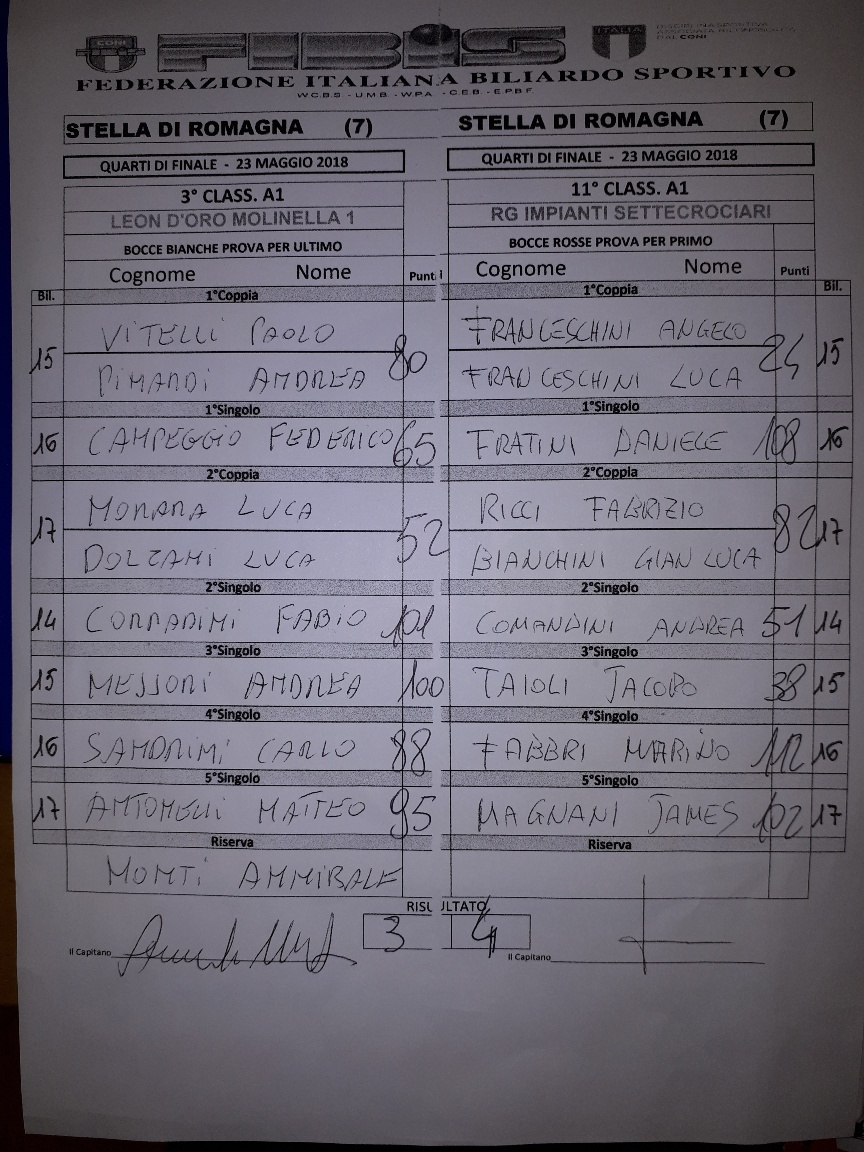 CONI
FIBiS
ITALIA
DISCIPLINA SPORTIVA
ASSOCIATA RICONOSCIUTA
DAL CONI
FEDERAZIONE ITALIANA BILIARDO SPORTIVO
W.C.B.S. - U.M.B. - W.P.A. - C.E.B. - E.P.B.F.
STELLA DI ROMAGNA (7) STELLA DI ROMAGNA (7)
QUARTI DI FINALE - 23 MAGGIO 2018 QUARTI DI FINALE - 23 MAGGIO 2018
3° CLASS. A1 11° CLASS. A1
LEON D'ORO MOLINELLA 1 RG IMPIANTI SETTECROCIARI
BOCCE BIANCHE PROVA PER ULTIMO BOCCE ROSSE PROVA PER PRIMO
Cognome Nome Punti Cognome Nome Punti
Bil. 1°Coppia 1°Coppia Bil.
VITELLI PAOLO FRANCESCHINI ANGELO
15 80 24 15
PIMARDI ANDREA FRANCESCHINI LUCA
1°Singolo 1°Singolo
16 CAMPEGGIO FEDERICO 65 FRATINI DANIELE 108 16
2°Coppia 2°Coppia
MORARA LUCA RICCI FABRIZIO
17 52 82 17
DOLZANI LUCA BIANCHINI GIAN LUCA
2°Singolo 2°Singolo
14 CORRADINI FABIO 101 COMANDINI ANDREA 51 14
3°Singolo 3°Singolo
15 MESSORI ANDREA 100 TAIOLI JACOPO 38 15
4°Singolo 4°Singolo
16 SANDRINI CARLO 88 FABBRI MARINO 112 16
5°Singolo 5°Singolo
17 ANTONELLI MATTEO 95 MAGNANI JAMES 102 17
Riserva Riserva
MONTI ANNIBALE
RISULTATO
3 4
Il Capitano Il Capitano